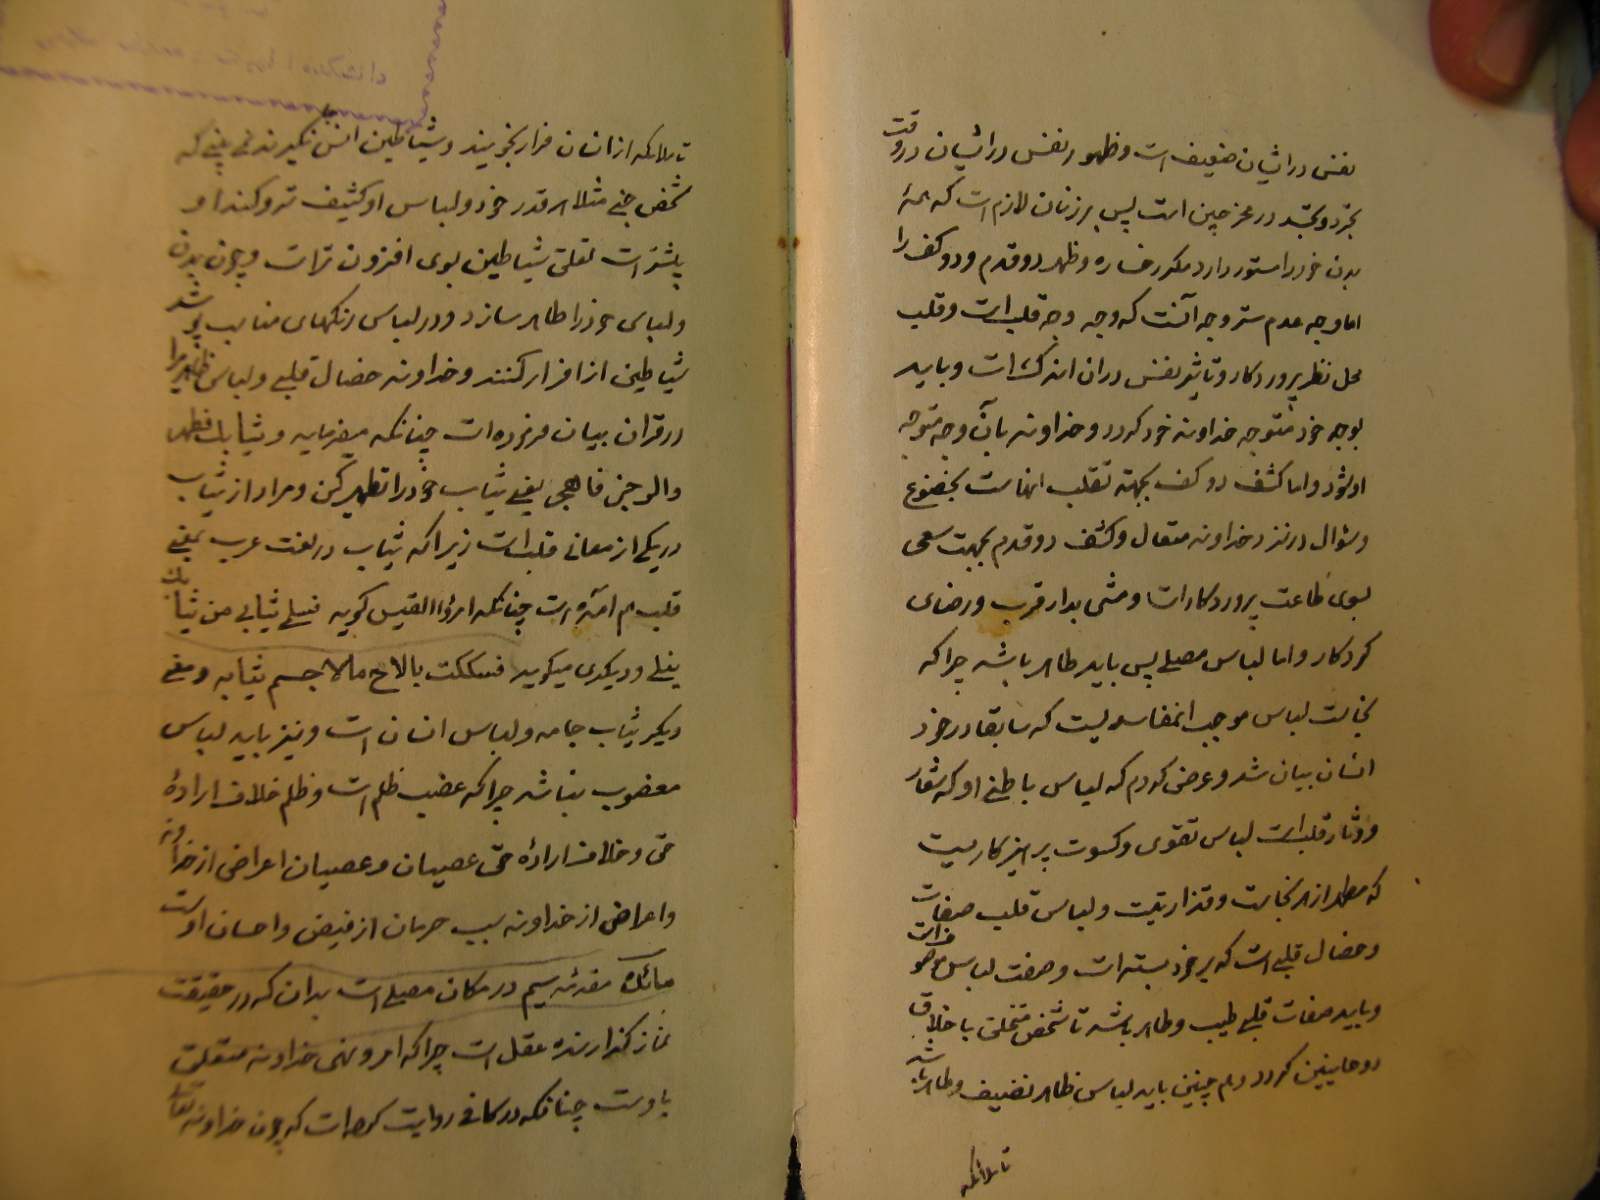 نفس در ایشان ضعیف است و ظهور نفس در ایشان در وقت
تجرد و تجسد در عز چین است پس بر زنان لازم است که همهٔ
بدن خود را مستور دارد مکر رخساره و ظهر دو قدم و دو کف را
اما وجه عدم ستر وجه آنست که وجه وجه قلب است و قلب
محل نظر پروردکار و تاثیر نفس در ان اندک است و باید
بوجه خود متوجه خداوند خود کردد و خداوند بآن وجه متوجه
او شود و اما کشف دو کف بجهته تقلب انهاست بخضوع
و سؤال در نزد خداوند متعال و کشف دو قدم بجهت سعی
بسوی طاعت پروردکار است و مشی بدار قرب و رضای
کردکار و اما لباس مصلی پس باید طاهر باشد چرا که
نجاست لباس موجب انفاسدیست که سابقا در خود
انسان بیان شد و عرض کردم که لباس باطنی او که شعار
و دثار قلب است لباس تقوی و کسوت پرهیزکاریست
که مطهر از هر نجاست و قذارتیست و لباس قلب صفات
و خصال قلبی است که بر خود بسته است و صفت لباس موصوفست
و باید صفات قلبی طیب و طاهر باشد تا شخص متخلق باخلاق
روحانیین کردد و هم چنین باید لباس ظاهر نظیف و طاهر باشد
تا ملائکه
تا ملائکه از انسان فرار نجویند و شیاطین انس نکیرند نمی بینی که
شخص جنی مثلا هر قدر خود و لباس او کثیف تر و کند او
بیشتر است تعلق شیاطین بوی افزون تر است و چون بدن
و لباس خود را طاهر سازد و در لباس رنکهای مناسب پوشد
شیاطین از او فرار کنند و خداوند خصال قلبی و لباس ظاهری را
در قران بیان فرموده است چنانکه میفرماید و ثیابک فطهر
والرجز فاهجر یعنی ثیاب خود را تطهیر کن و مراد از ثیاب
در یکی از معانی قلب است زیرا که ثیاب در لغت عرب بمعنی
قلب هم آمده است چنانکه امرؤ القیس کوید فسلی ثیابی من ثیابک
ینسلی و دیکری میکوید فشککت بالرمح الاصم ثیابه و معنی
دیکر ثیاب جامه و لباس انسان است و نیز باید لباس
مغصوب نباشد چرا که غضب ظلم است و ظلم خلاف ارادهٔ
حق و خلاف ارادهٔ حق عصیان و عصیان اعراض از خداوند
و اعراض از خداوند سبب حرمان از فیض و احسان اوست
مائدهٔ مقدمه سیم در مکان مصلی است بدان که در حقیقت
نماز کذارنده عقل است چرا که امر و نهی خداوند متعلق
باوست چنانکه در کافی روایت کرده است که چون خداوند تعالی